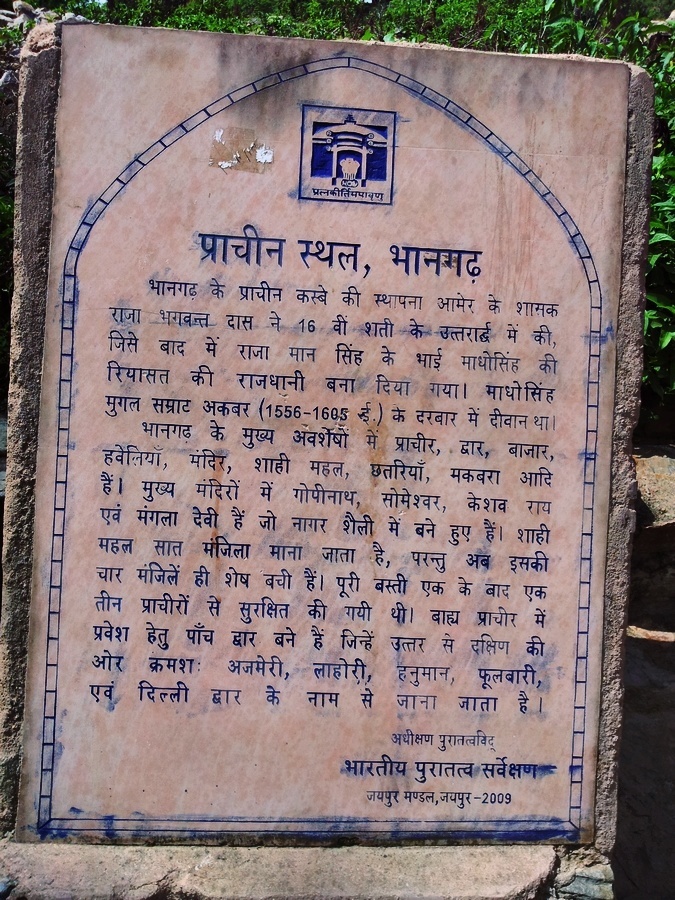 प्रत्नकीर्तिमपावृणु
प्राचीन स्थल, भानगढ़
भानगढ़ के प्राचीन कस्बे की स्थापना आमेर के शासक
राजा भगवन्त दास ने 16 वीं शती के उत्तरार्द्ध में की,
जिसे बाद में राजा मान सिंह के भाई माधोसिंह की
रियासत की राजधानी बना दिया गया। माधोसिंह
मुगल सम्राट अकबर (1556-1605 ई.) के दरबार में दीवान था।
भानगढ़ के मुख्य अवशेषों में प्राचीर, द्वार, बाजार,
हवेलियाँ, मंदिर, शाही महल, छतरियाँ, मकबरा आदि
हैं। मुख्य मंदिरों में गोपीनाथ, सोमेश्वर, केशव राय
एवं मंगला देवी हैं जो नागर शैली में बने हुए हैं। शाही
महल सात मंजिला माना जाता है, परन्तु अब इसकी
चार मंजिलें ही शेष बची हैं। पूरी बस्ती एक के बाद एक
तीन प्राचीरों से सुरक्षित की गयी थी। बाह्य प्राचीर में
प्रवेश हेतु पाँच द्वार बने हैं जिन्हें उत्तर से दक्षिण की
ओर क्रमशः अजमेरी, लाहोरी, हनुमान, फूलबारी,
एवं दिल्ली द्वार के नाम से जाना जाता है।
अधीक्षण पुरातत्वविद्
भारतीय पुरातत्व सर्वेक्षण
जयपुर मण्डल, जयपुर-2009